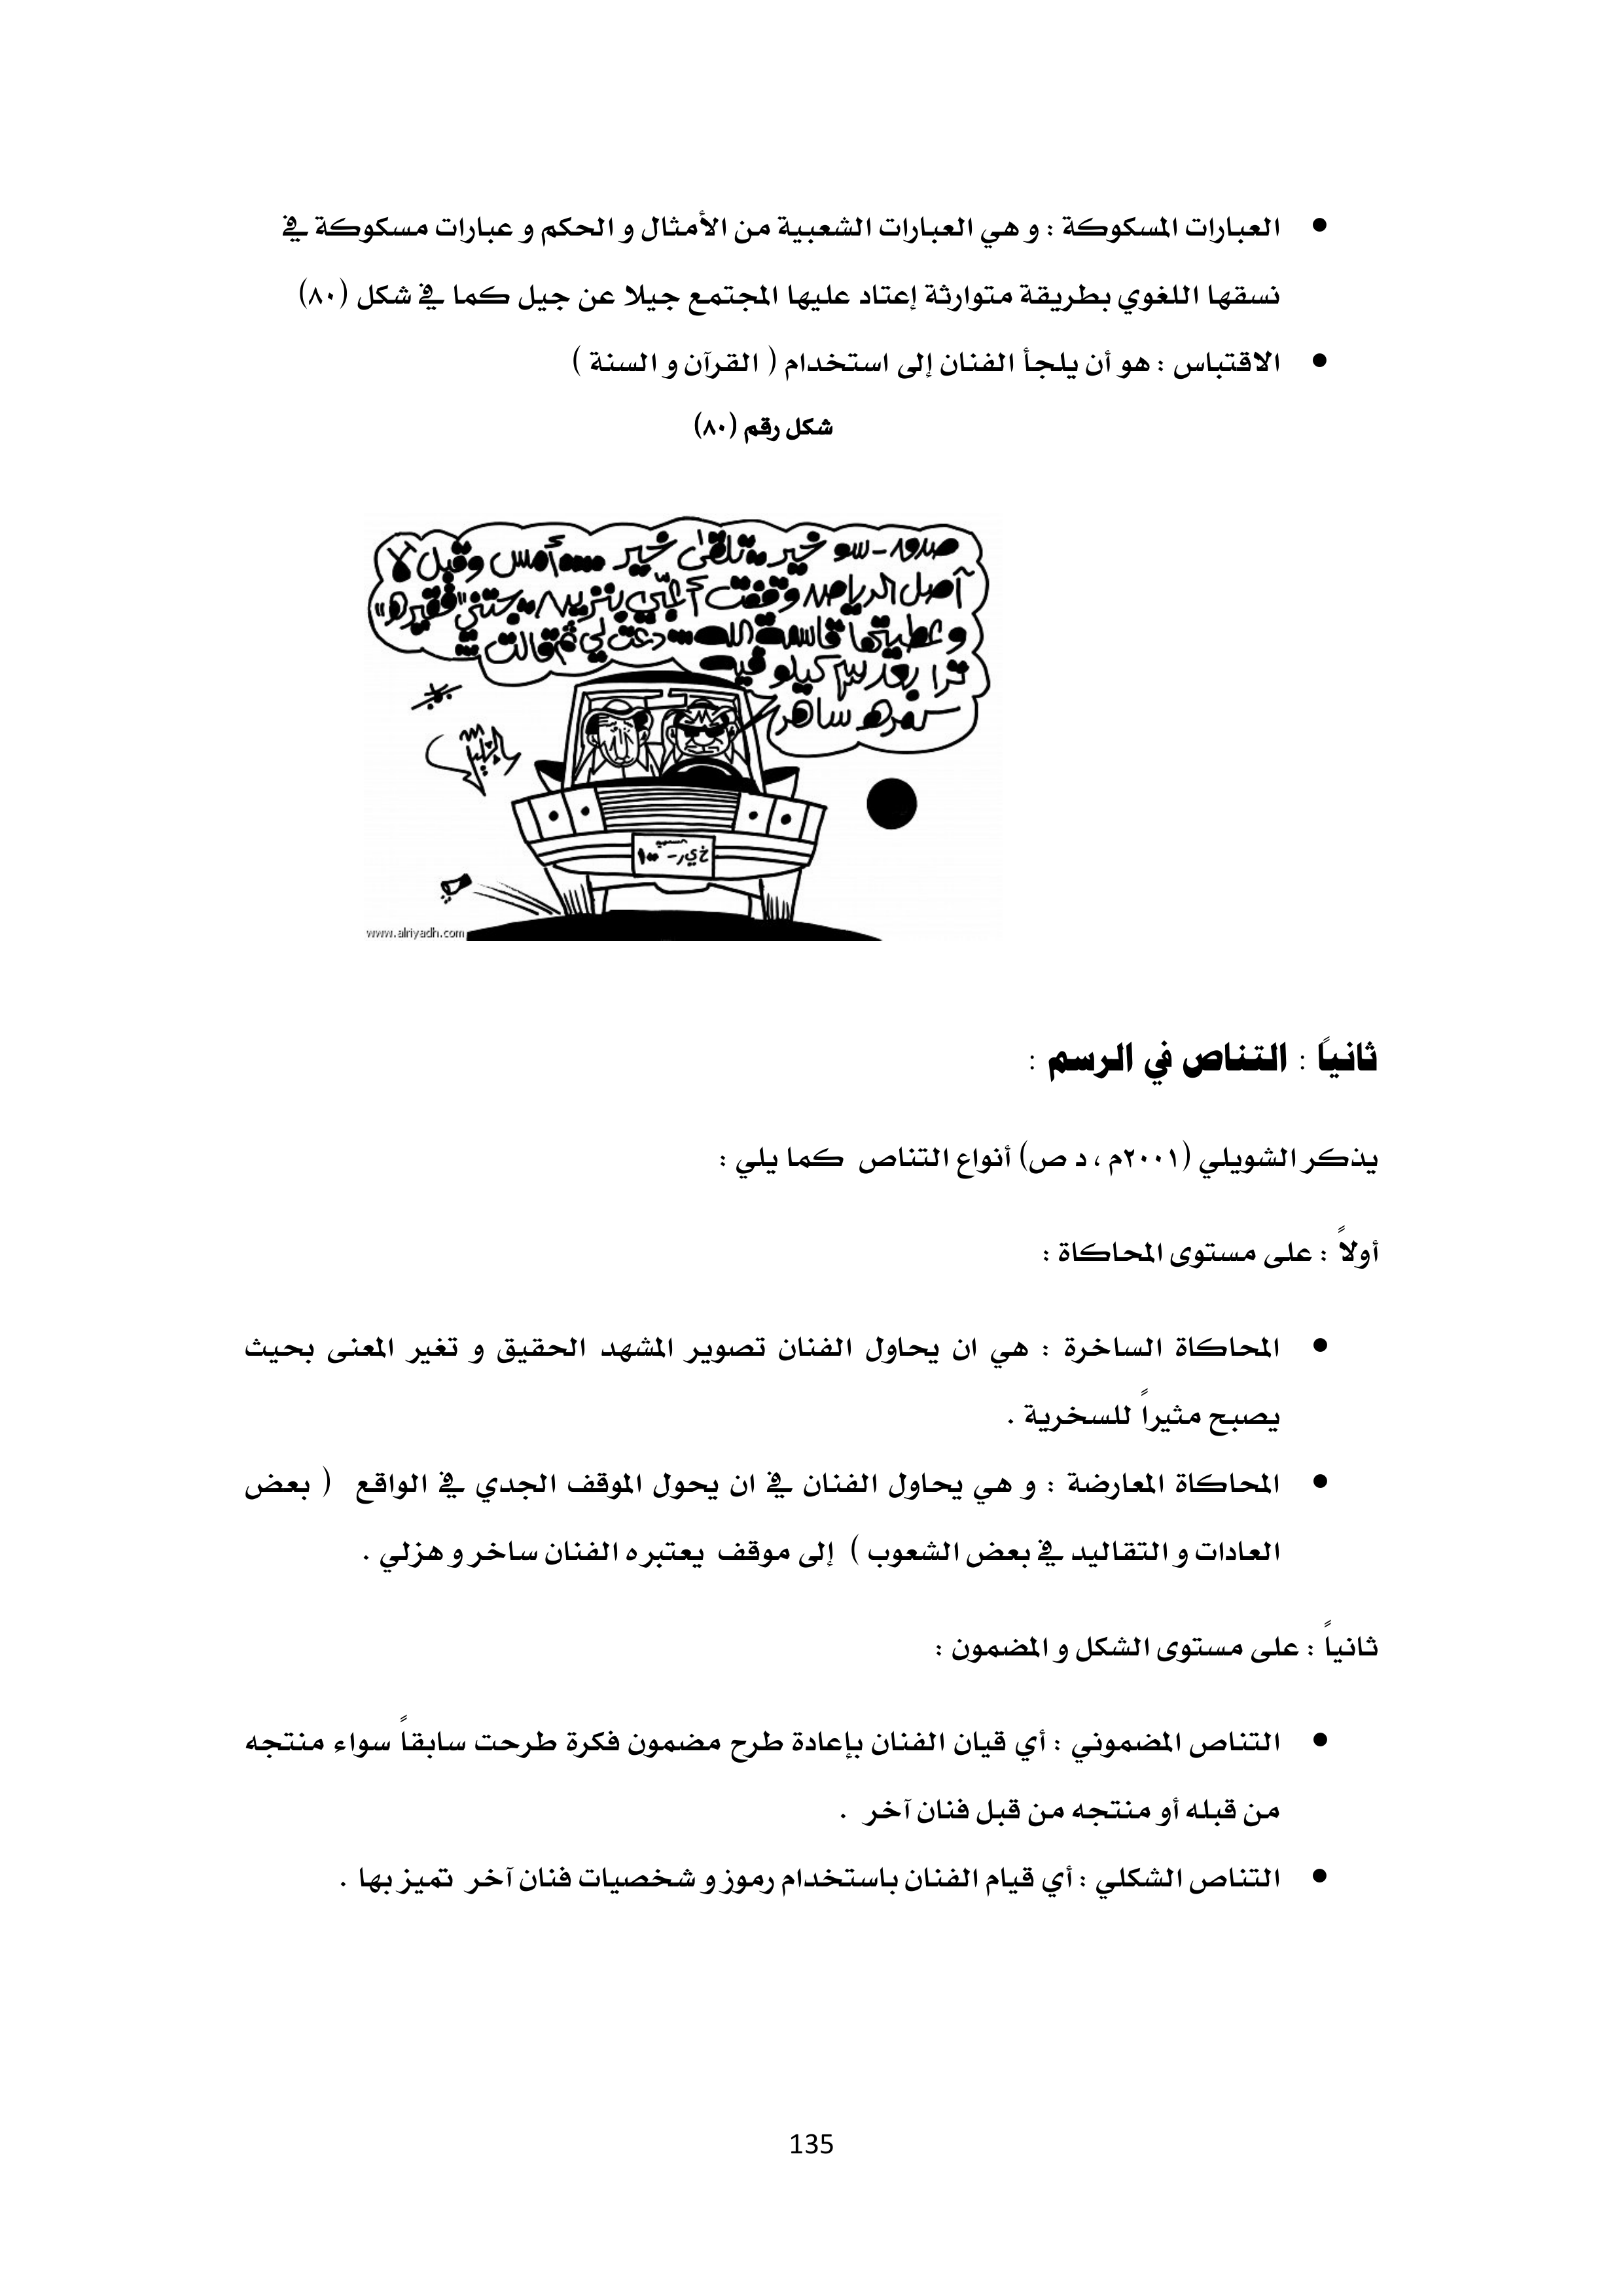 • العبارات المسكوكة : و هي العبارات الشعبية من الأمثال و الحكم و عبارات مسكوكة في
نسقها اللغوي بطريقة متوارثة إعتاد عليها المجتمع جيلا عن جيل كما في شكل (٨٠)
• الاقتباس : هو أن يلجأ الفنان إلى استخدام ( القرآن و السنة )
شكل رقم (٨٠)
خير تلقى خير أمس وقبل لا
آصل الرياض وقفت أعبي بنزين جتني "فقيره"
وعطيتها قاسمة الله دعت لي ثم قالت
ترا بعد كيلو فيه
ساهر
www.alriyadh.com
ثانياً : التناص في الرسم :
يذكر الشويلي (٢٠٠١م ، د ص) أنواع التناص كما يلي :
أولاً : على مستوى المحاكاة :
• المحاكاة الساخرة : هي ان يحاول الفنان تصوير المشهد الحقيق و تغير المعنى بحيث
يصبح مثيراً للسخرية .
• المحاكاة المعارضة : و هي يحاول الفنان في ان يحول الموقف الجدي في الواقع ( بعض
العادات و التقاليد في بعض الشعوب ) إلى موقف يعتبره الفنان ساخر و هزلي .
ثانياً : على مستوى الشكل و المضمون :
• التناص المضموني : أي قيان الفنان بإعادة طرح مضمون فكرة طرحت سابقاً سواء منتجه
من قبله أو منتجه من قبل فنان آخر .
• التناص الشكلي : أي قيام الفنان باستخدام رموز و شخصيات فنان آخر تميز بها .
135